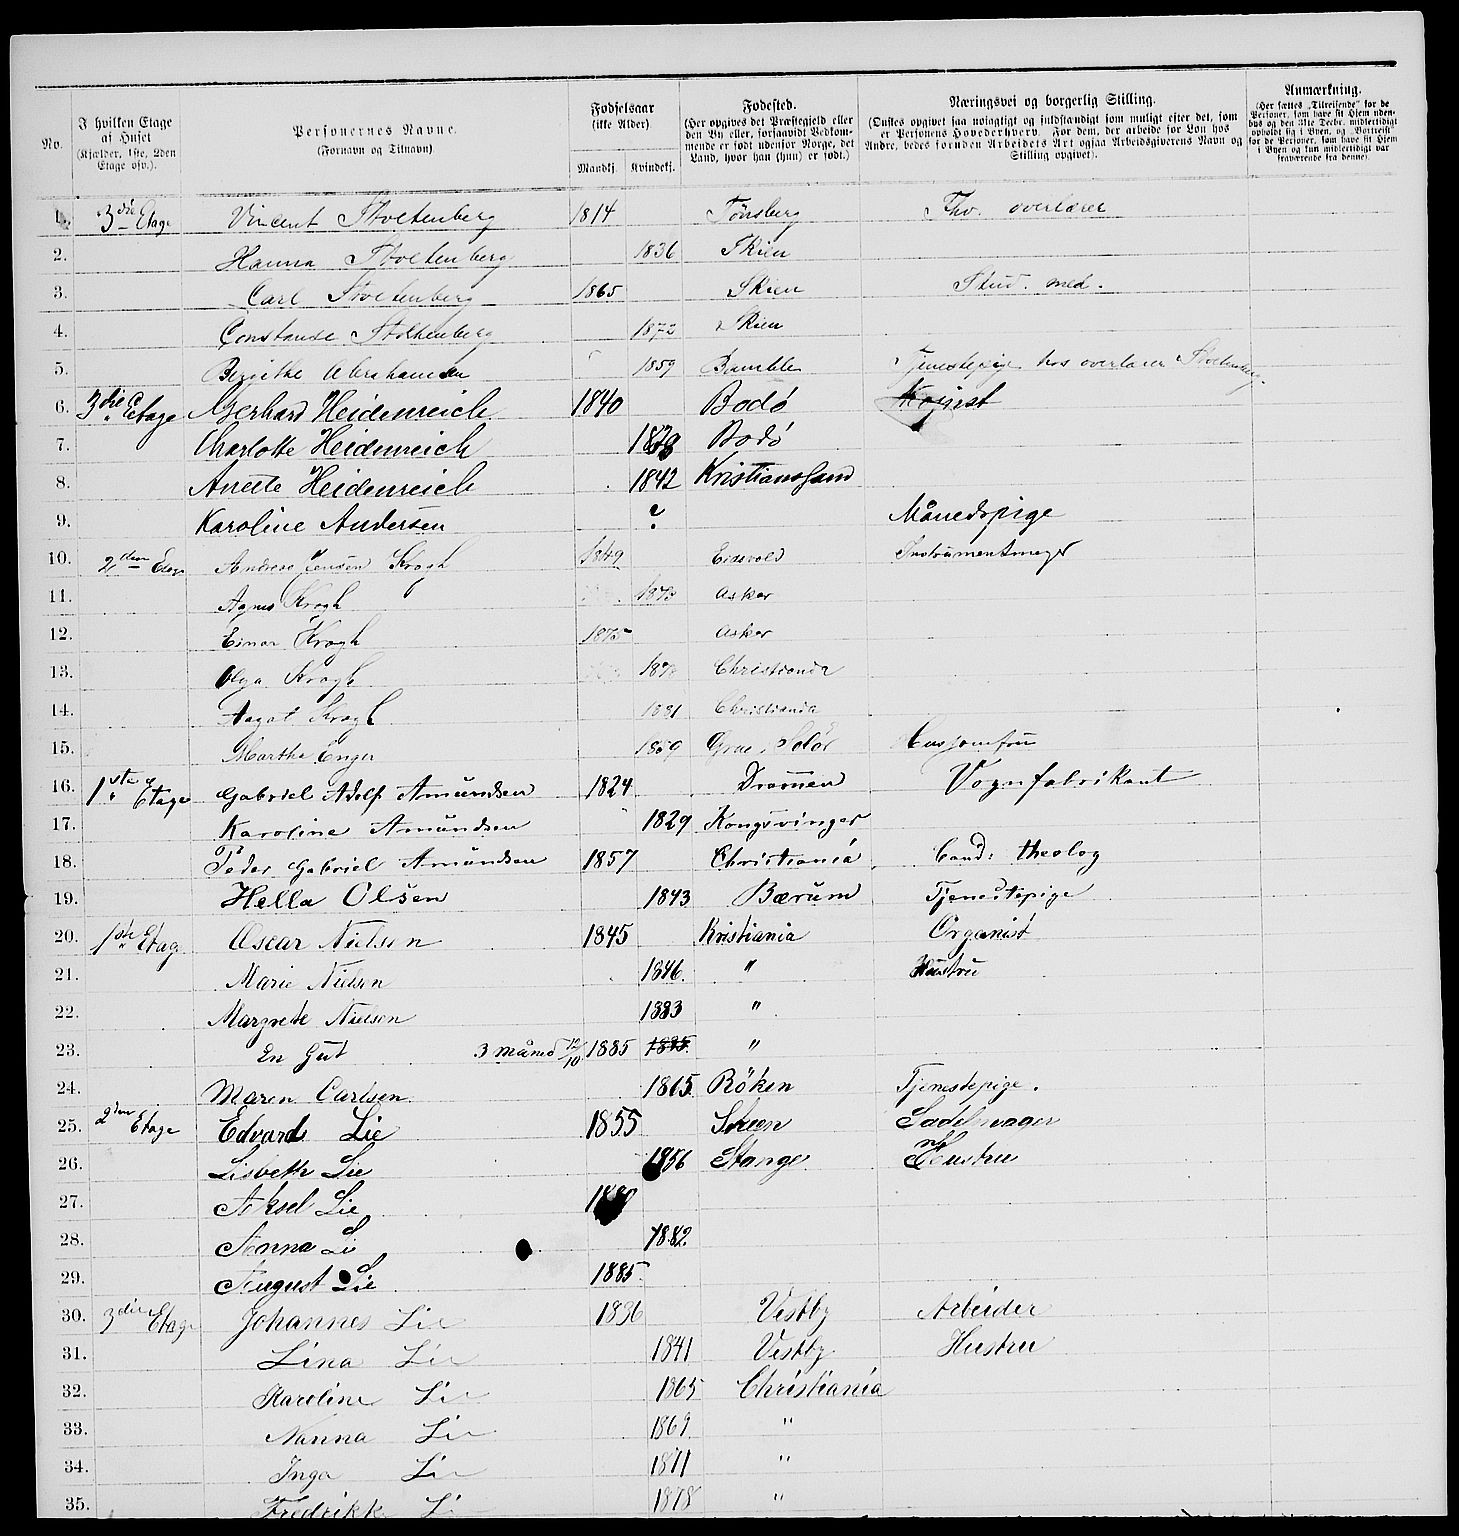 No.
I hvilken Etage af Huset (Kjælder, 1ste, 2den Etage osv.).
Personernes Navne. (Fornavn og Tilnavn)
Fødselsaar (ikke Alder)
Mandkj. Kvindekj.
Fødested. (Her opgives det Præstegjeld eller den By eller, forsaavidt Vedkommende er født udenfor Norge, det Land, hvor han (hun) er født.)
Næringsvei og borgerlig Stilling. (Ønskes opgivet saa nøiagtigt og fuldstændigt som muligt efter det, som er Personens Hovederhverv. For dem, der arbeide for Løn hos Andre, bedes foruden Arbeidets Art ogsaa Arbeidsgiverens Navn og Stilling opgivet).
Anmærkning. (Her sættes „Tilreisende" for de Personer, som have sit Hjem udenbys og den 31te Decbr. midlertidigt opholdt sig i Byen, og „Bortreist" for de Personer, som have sit Hjem i Byen og kun midlertidigt var fraværende fra denne).
1. 3die Etage Vincent Stoltenberg 1814 Tönsberg Fhv. overlærer
2. Hanna Stoltenberg 1836 Skien
3. Carl Stoltenberg 1865 Skien Stud. med.
4. Constanse Stoltenberg 1872 Skien
5. Abrahamsen 1859 Bamble Tjenestepige hos overlærer Stoltenberg.
6. 3die Etage Gerhard Heidenreich 1840 Bodö
7. Charlotte Heidenreich Bodö
8. Anette Heidenreich 1842 Kristianssand
9. Karoline Andersen ? Månedspige
10. 2den Etage Andreas Jensen Krogh 1849 Eidsvold Instrumentmager
11. Agnes Krogh Asker
12. Einar Krogh 1875 Asker
13. Olga Krogh Christiania
14. Aagot Krogh 1881 Christiania
15. Marthe Enger 1859 Grue, Solör Husjomfru
16. 1ste Etage Gabriel Adolf Amundsen 1824 Drammen Vognfabrikant
17. Karoline Amundsen 1829 Kongsvinger
18. Peder Gabriel Amundsen 1857 Christiania Cand: theolog
19. Hella Olsen 1843 Bærum Tjenestepige
20. 1ste Etage Oscar Nielsen 1845 Kristiania Organist
21. Marie Nielsen 1846 " Hustru
22. Margrete Nielsen 1883 "
23. En Gut 3 måned 12/10 1885 1885 "
24. Maren Carlsen 1865 Röken Tjenestepige.
25. 2den Etage Edvard Lie 1855 Skien Sadelmager
26. Lisbeth Lie 1856 Stange Hustru
27. Aksel Lie 1880
28. Nanna Li 1882.
29. August Lie 1885.
30. 3die Etage Johannes Lie 1836 Vestby Arbeider
31. Lina Lie 1841 Vestby Hustru
32. Karoline Lie 1865 Christiania
33. Nanna Lie 1869. "
34. Inga Lie 1871 "
35. Fredrikke Li 1878 "